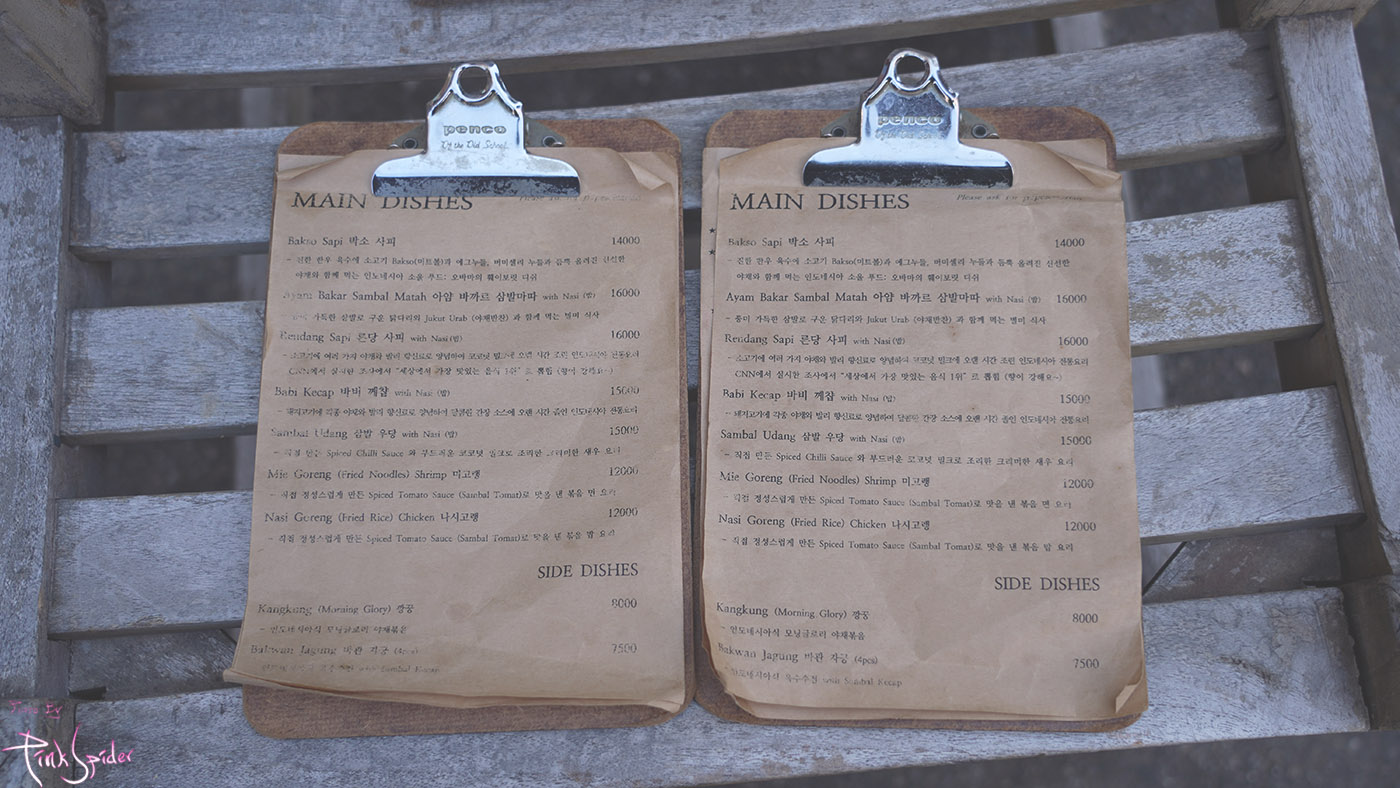 penco
MAIN DISHES
Bakso Sapi 박소 사피 14000
- 진한 한우 육수에 소고기 Bakso(미트볼)과 에그누들, 버미셀리 누들과 듬뿍 올려진 신선한
야채와 함께 먹는 인도네시아 소울 푸드: 오바마의 훼이보릿 디쉬
Ayam Bakar Sambal Matah 아얌 바까르 삼발마따 with Nasi (밥) 16000
가득한 삼발로 구운 닭다리와 Jukut Urab (야채반찬) 과 함께 먹는 별미 식사
Rendang Sapi 른당 사피 with Nasi (밥) 16000
- 소고기에 여러 가지 야채와 발리 향신료로 양념하여 코코넛 밀크에 오랜 시간 조린 인도네시아 전통요리
CNN에서 실시한 조사에서 "세상에서 가장 맛있는 음식 1위" 로 뽑힘 (향이 강해요~)
Babi Kecap 바비 께찹 with Nasi (밥) 15000
- 돼지고기에 각종 야채와 발리 향신료로 양념하여 달콤한 간장 소스에 오랜 시간 졸인 인도네시아 전통요리
Sambal Udang 삼발 우당 with Nasi (밥) 15000
- 직접 만든 Spiced Chilli Sauce 와 부드러운 코코넛 밀크로 조리한 크리미한 새우 요리
Mie Goreng (Fried Noodles) Shrimp 미고랭 12000
- 직접 정성스럽게 만든 Spiced Tomato Sauce (Sambal Tomat)로 맛을 낸 볶음 면 요리
Nasi Goreng (Fried Rice) Chicken 나시고랭 12000
- 직접 정성스럽게 만든 Spiced Tomato Sauce (Sambal Tomat)로 맛을 낸 볶음 밥 요리
SIDE DISHES
Kangkung (Morning Glory) 깡꿍 8000
- 인도네시아식 모닝글로리 야채볶음
Bakwan Jagung 바콴 작궁 (4pcs) 7500
with Sambal Kecap
penco
MAIN DISHES Please ask for
Bakso Sapi 박소 사피 14000
- 진한 한우 육수에 소고기 Bakso(미트볼)과 에그누들, 버미셀리 누들과 듬뿍 올려진 신선한
야채와 함께 먹는 인도네시아 소울 푸드: 오바마의 훼이보릿 디쉬
Ayam Bakar Sambal Matah 아얌 바까르 삼발마따 with Nasi (밥) 16000
- 풍미 가득한 삼발로 구운 닭다리와 Jukut Urab (야채반찬) 과 함께 먹는 별미 식사
Rendang Sapi 른당 사피 with Nasi (밥) 16000
- 소고기에 여러 가지 야채와 발리 향신료로 양념하여 코코넛 밀크에 오랜 시간 조린 인도네시아 전통요리
CNN에서 실시한 조사에서 "세상에서 가장 맛있는 음식 1위" 로 뽑힘 (향이 강해요~)
Babi Kecap 바비 께찹 with Nasi (밥) 15000
- 돼지고기에 각종 야채와 발리 향신료로 양념하여 달콤한 간장 소스에 오랜 시간 졸인 인도네시아 전통요리
Sambal Udang 삼발 우당 with Nasi (밥) 15000
- 직접 만든 Spiced Chilli Sauce 와 부드러운 코코넛 밀크로 조리한 크리미한 새우 요리
Mie Goreng (Fried Noodles) Shrimp 미고랭 12000
- 직접 정성스럽게 만든 Spiced Tomato Sauce (Sambal Tomat)로 맛을 낸 볶음 면 요리
Nasi Goreng (Fried Rice) Chicken 나시고랭 12000
- 직접 정성스럽게 만든 Spiced Tomato Sauce (Sambal Tomat)로 맛을 낸 볶음 밥 요리
SIDE DISHES
Kangkung (Morning Glory) 깡꿍 8000
- 인도네시아식 모닝글로리 야채볶음
Bakwan Jagung 바콴 작궁 (4pcs) 7500
인도네시아식 옥수수전 with Sambal Kecap
Pink Spider